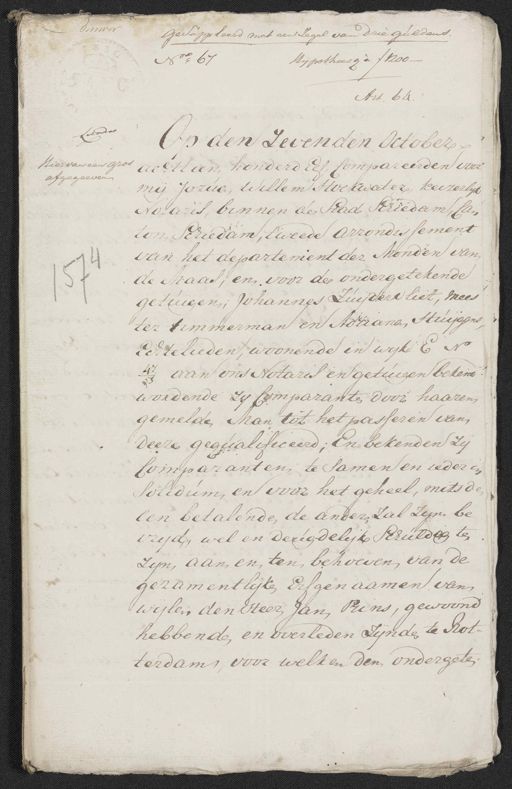 Gesuppleerd met een Zegel van drie guldens.
No. 67 Hypotheecq à ƒ 1200.—
Art. 64.
Hiervan een gros
afgegeven
1574
Op den Zevenden October
achttien honderd Elf Compareerden voor
mij Jorue, Willem Stockwater, keizerlijk
Notaris, binnen de Stad Schiedam, Can
ton Schiedam, tweede arrondissement
van het departement der Monden van
de Maas, en voor de ondergetekende
getuigen, Johannes Zuijderliet, mees
ter timmerman en Adriana, Stuijpers,
Echtelieden, woonende in wijk E No
aan ons Notaris en getuigen bekend
wordende Zij Comparante door haaren
gemelde Man tot het passeren van
deeze gequalificeerd; En bekenden Zij
Comparanten, te Samen en ieder in
Solidum, en voor het geheel, mits de
een betalende, de ander Zal Zijn be
vrijd, wel en deugdelijk Schuldig te
Zijn, aan, en, ten, behoeven, van de
gezamentlijke Erfgenaamen van
wijlen den Heer Jan, Prins, gewoond
hebbende, en overleden Zijnde, te Rot-
terdam, voor welken den ondergete,